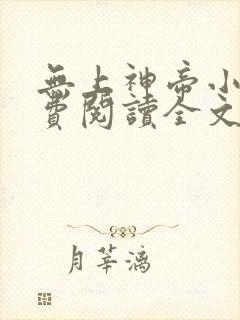 無上神帝小
費閱讀全文
月華漓